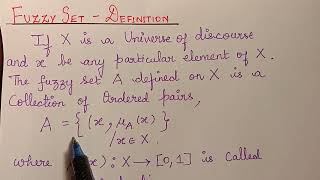 FUZZY SET - DEFINITION
If X is a Universe of discourse
and x be any particular element of X.
The fuzzy set A defined on X is a
Collection of Ordered pairs,
A = { (x, μA(x) }
/x ∈ X.
where (x) : X → [0,1] is called